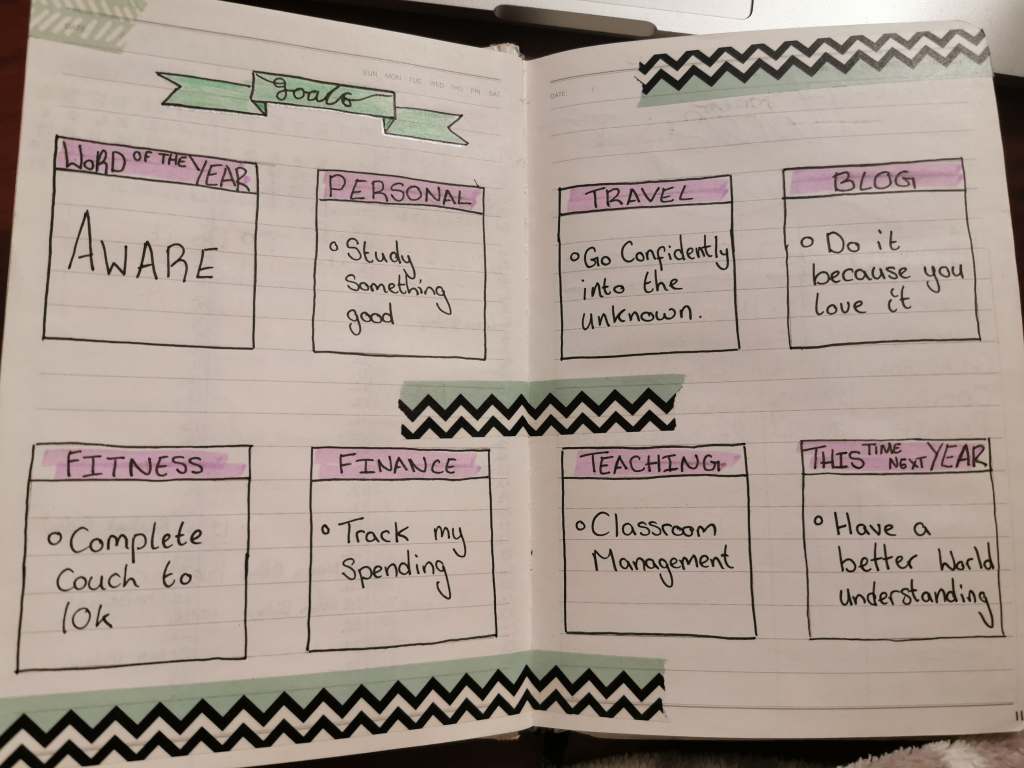 SUN MON TUE WED THU FRI SAT
Goals
WORD OF THE YEAR
AWARE
PERSONAL
Study
Something
good
FITNESS
Complete
Couch to
10k
FINANCE
Track my
Spending
DATE:
TRAVEL
Go Confidently
into the
unknown.
BLOG
Do it
because you
love it
TEACHING
Classroom
Management
THIS TIME NEXT YEAR
Have a
better World
understanding
11